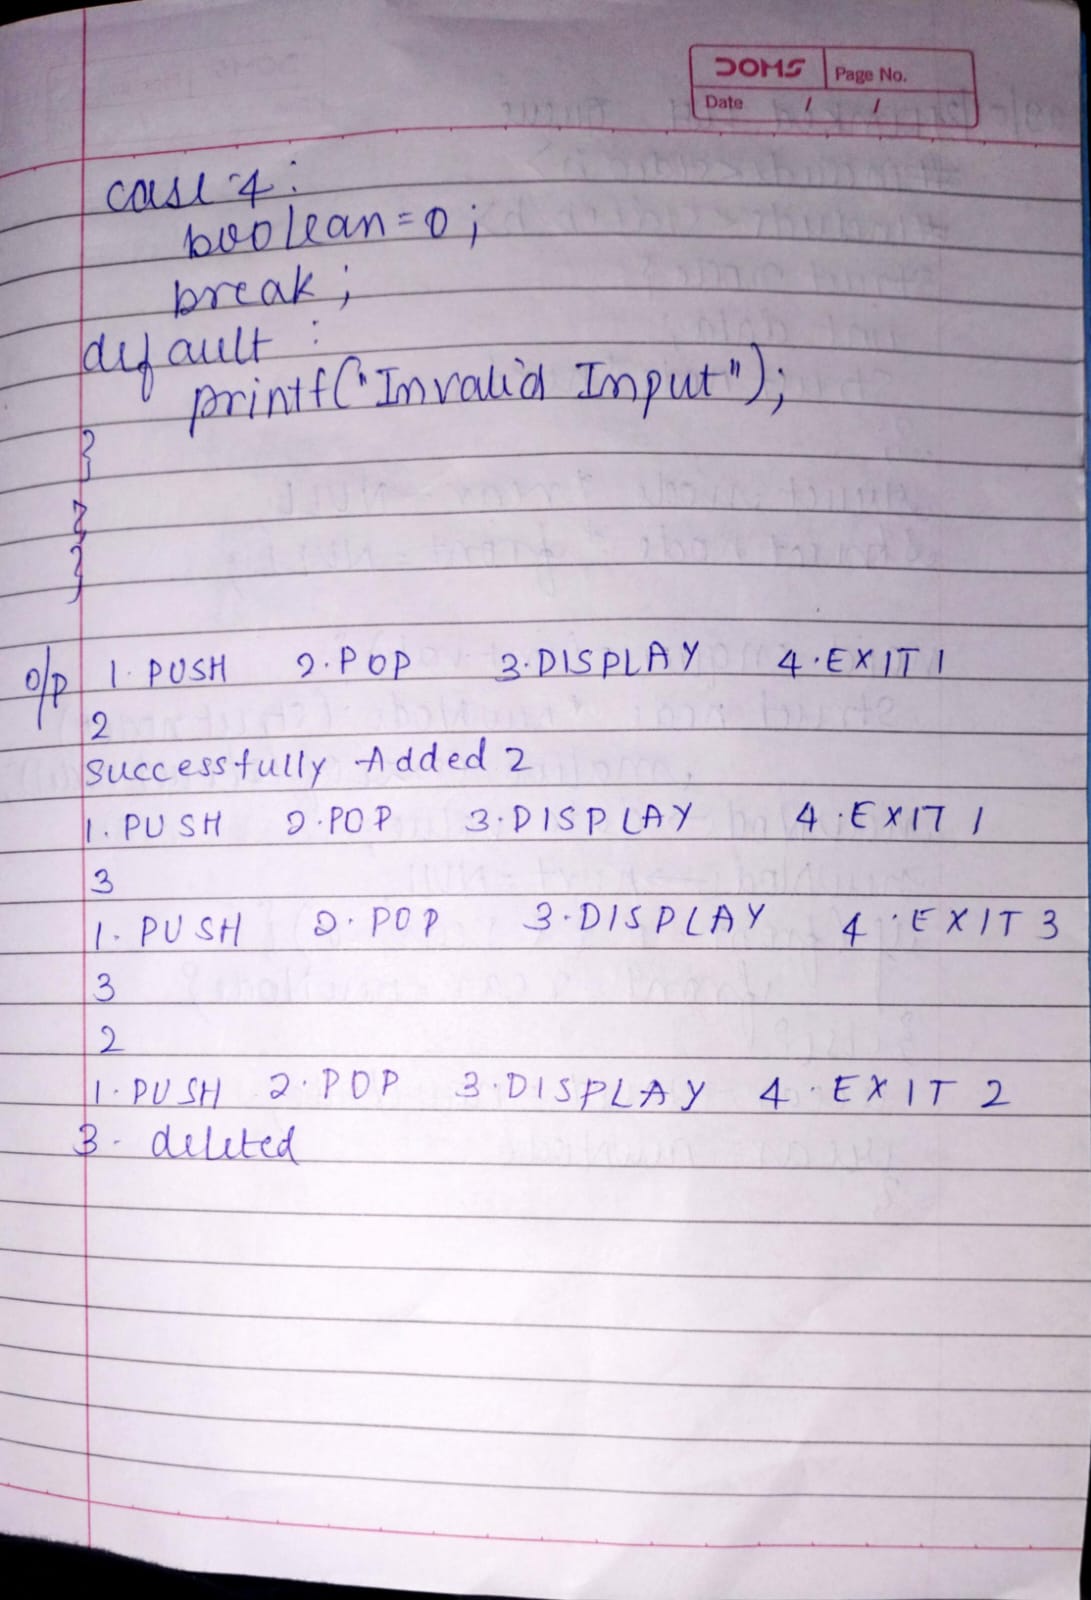 DOMS
Page No.
Date / /
case 4:
boolean=0;
break;
default :
printf("Invalid Input");
}
}
}
o/p 1. PUSH 2. POP 3. DISPLAY 4. EXIT 1
2
Successfully Added 2
1. PUSH 2. POP 3. DISPLAY 4. EXIT 1
3
1. PUSH 2. POP 3. DISPLAY 4. EXIT 3
3
2
1. PUSH 2. POP 3. DISPLAY 4. EXIT 2
3 - deleted